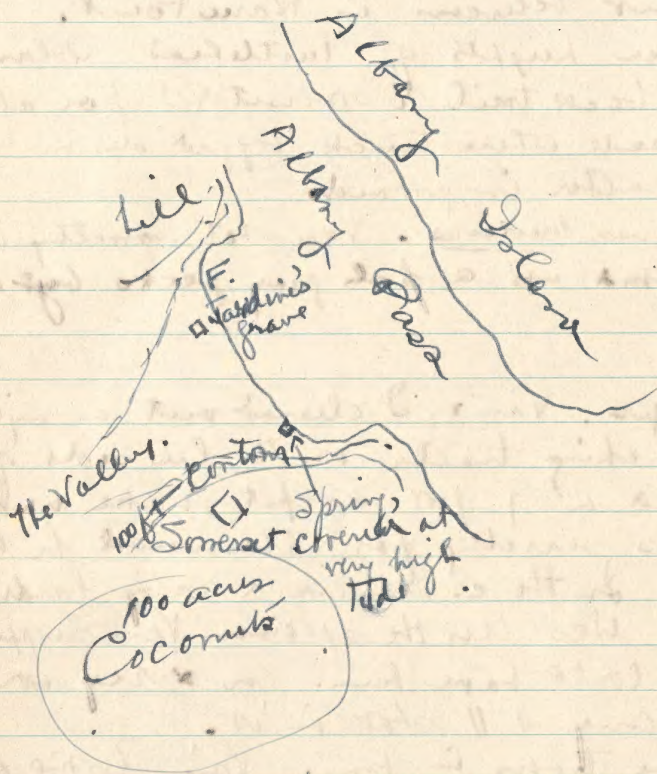 Albany
Island
Albany
Pass
hill
F.
Jardine's
grave
The Valley.
100 ft contour
Spring,
Somerset covered at
very high
tide
100 acres
Coconuts